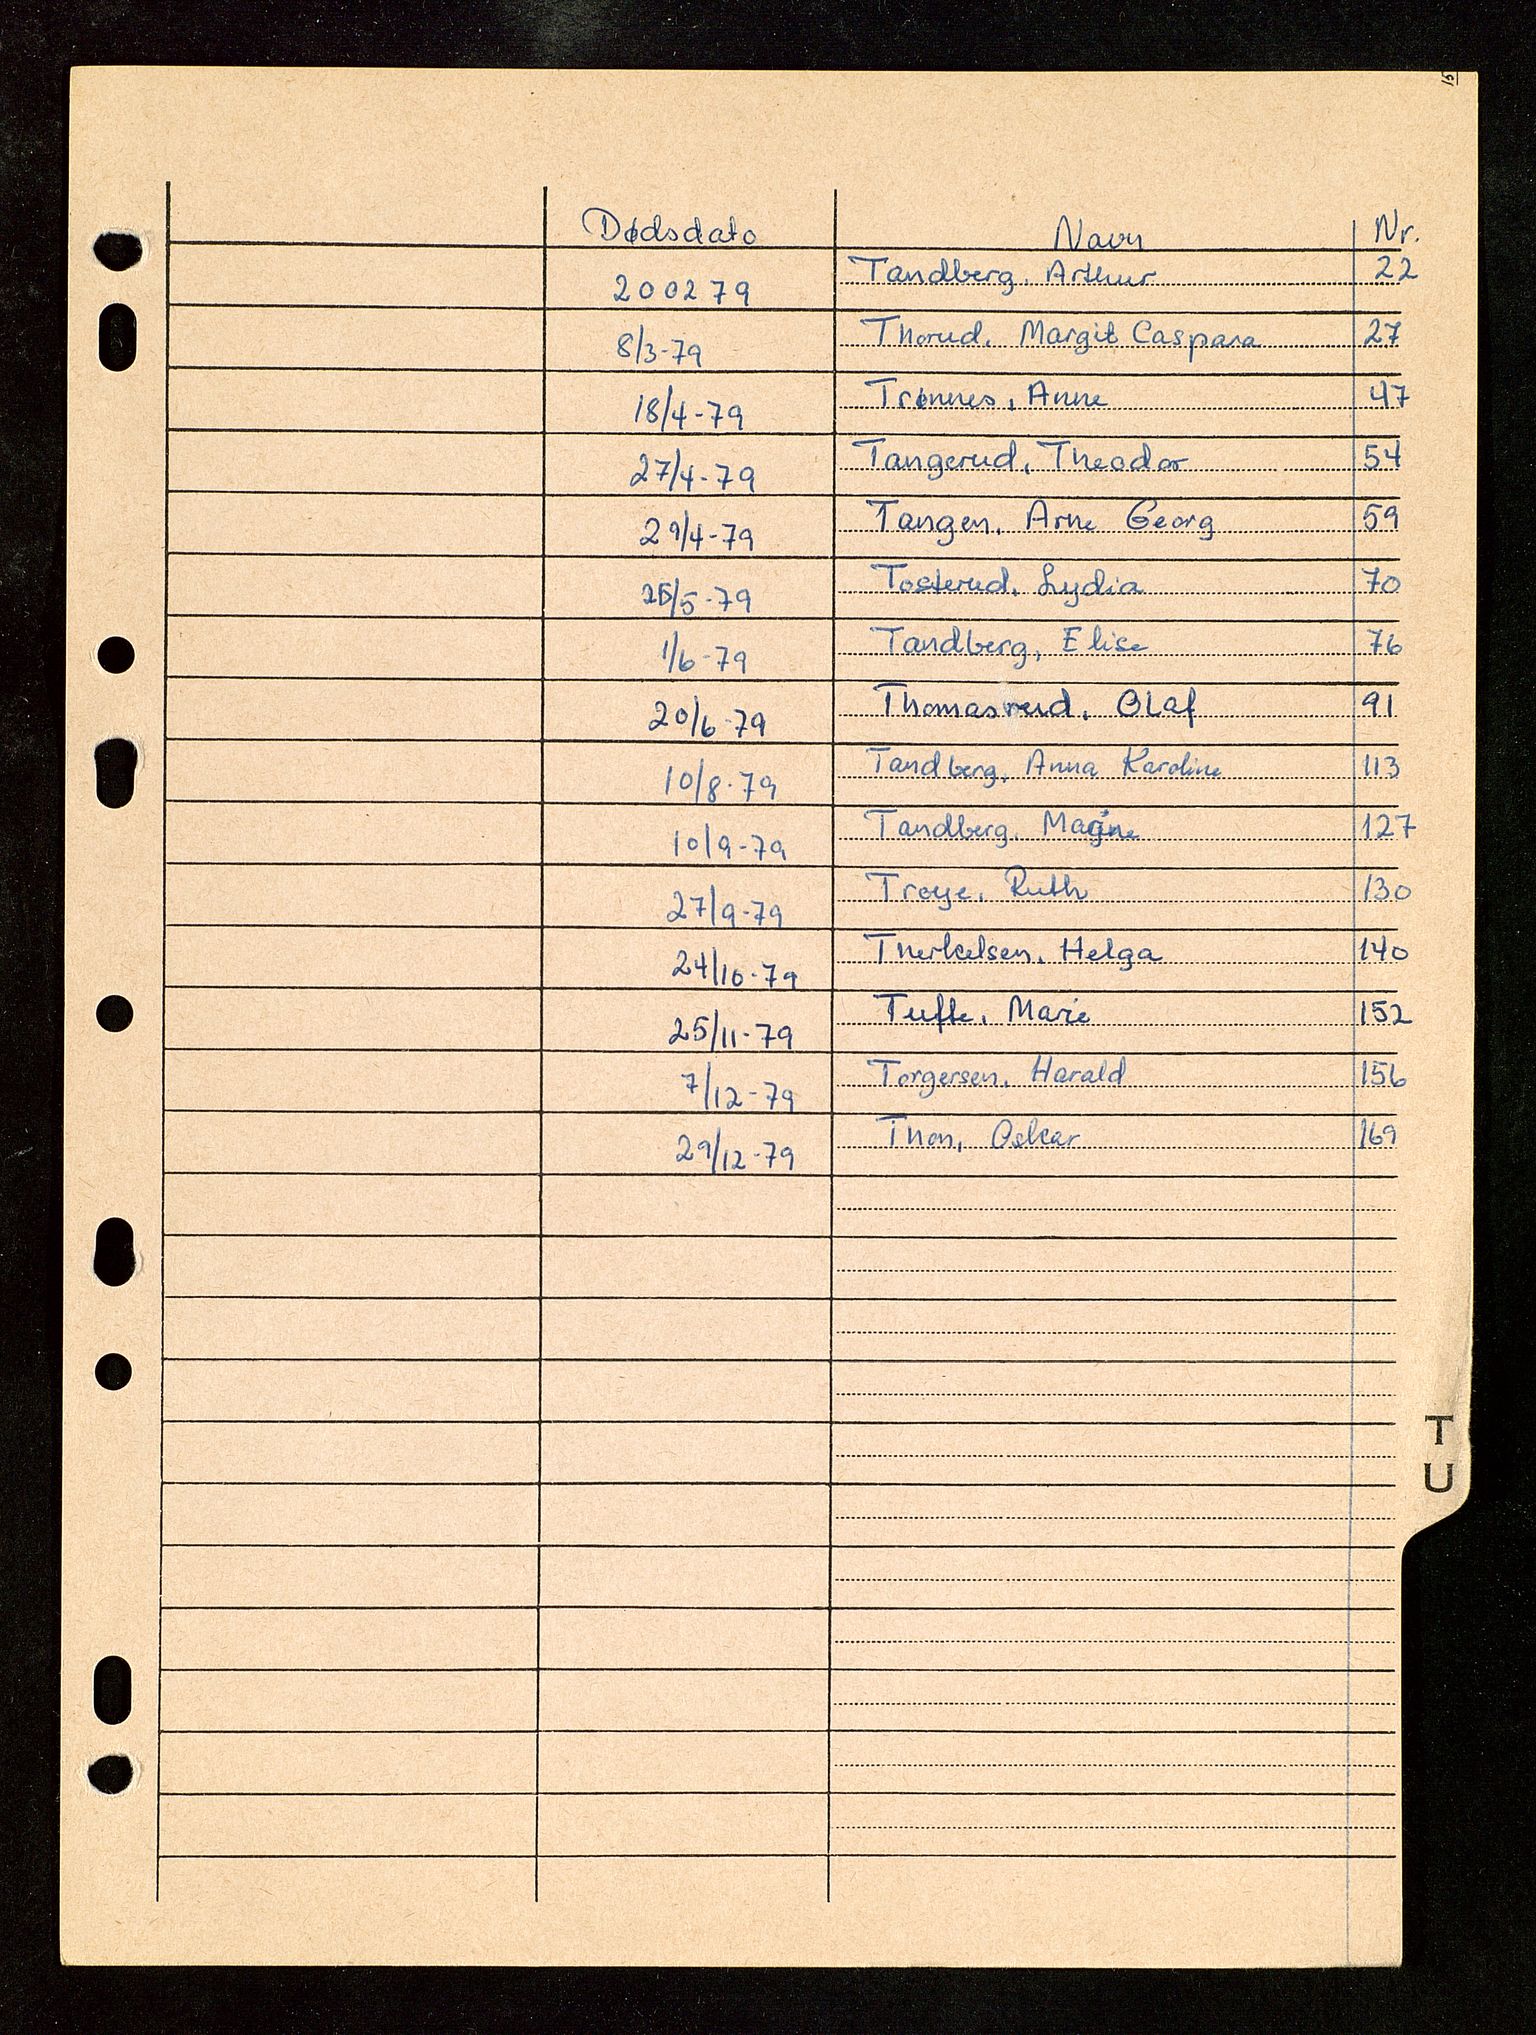 Dødsdato Navn Nr.
200279 Tandberg, Arthur 22
8/3-79 Thorud, Margit Caspara 27
18/4-79 Trønnes, Anne 47
27/4-79 Tangerud, Theodor 54
29/4-79 Tangen, Arne Georg 59
25/5-79 Tosterud, Lydia 70
1/6-79 Tandberg, Elise 76
20/6-79 Thomasrud, Olaf 91
10/8-79 Tandberg, Anna Karoline 113
10/9-79 Tandberg, 127
27/9-79 Trøye, Ruth 130
24/10-79 Therkelsen, Helga 140
25/11-79 Tufte, Marie 152
7/12-79 Torgersen, Harald 156
29/12-79 Thon, Oskar 169
T
U